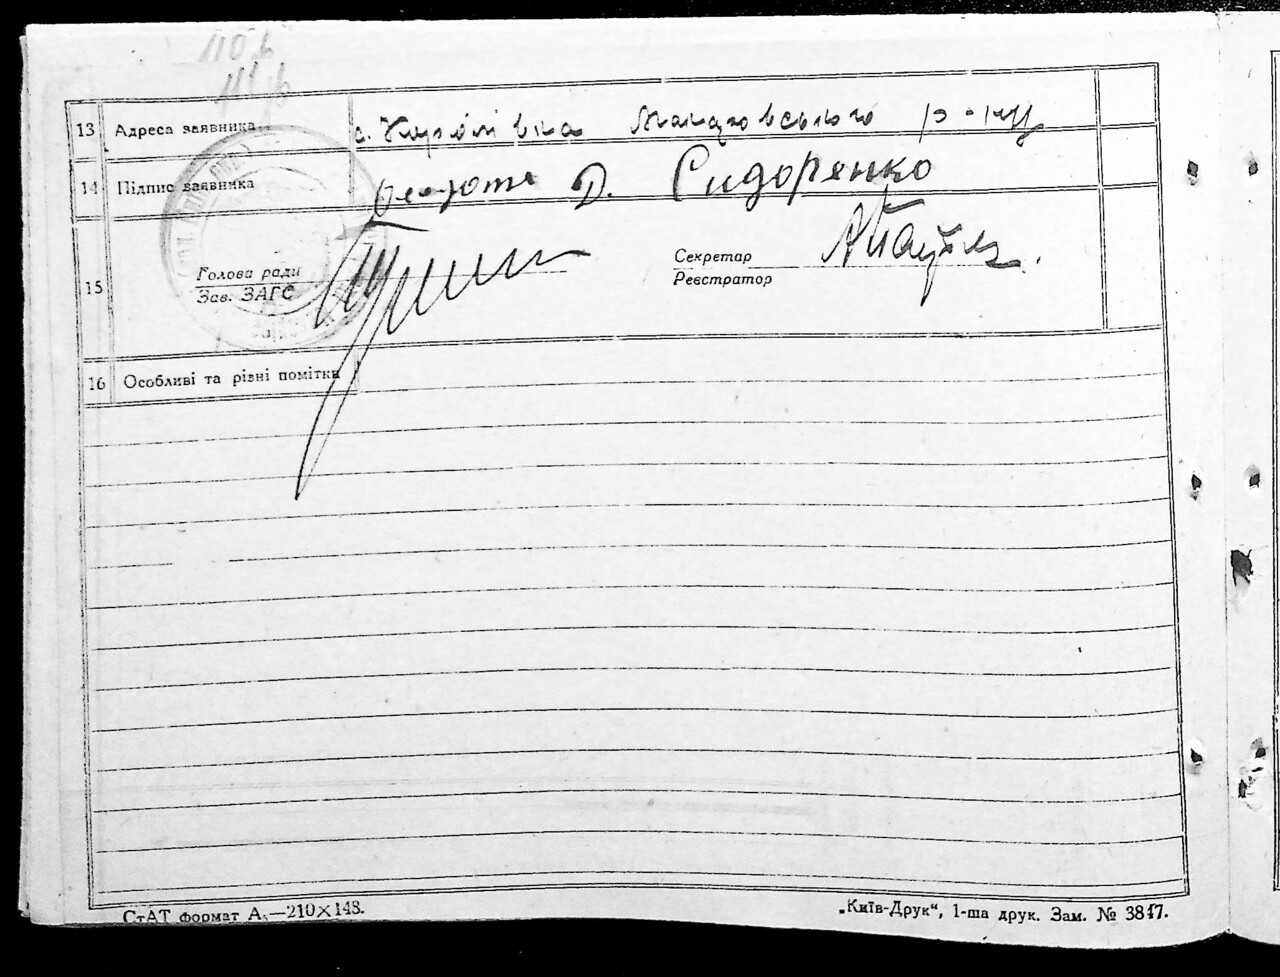 13 Адреса заявника с. Королівка Макаровського р-ну
14 Підпис заявника Д. Сидоренко
15 Голова ради
Зав. ЗАГС
Секретар
Реєстратор
16 Особливі та різні помітки
СтАТ формат А₅—210×148.
„Київ-Друк“, 1-ша друк. Зам. № 3847.